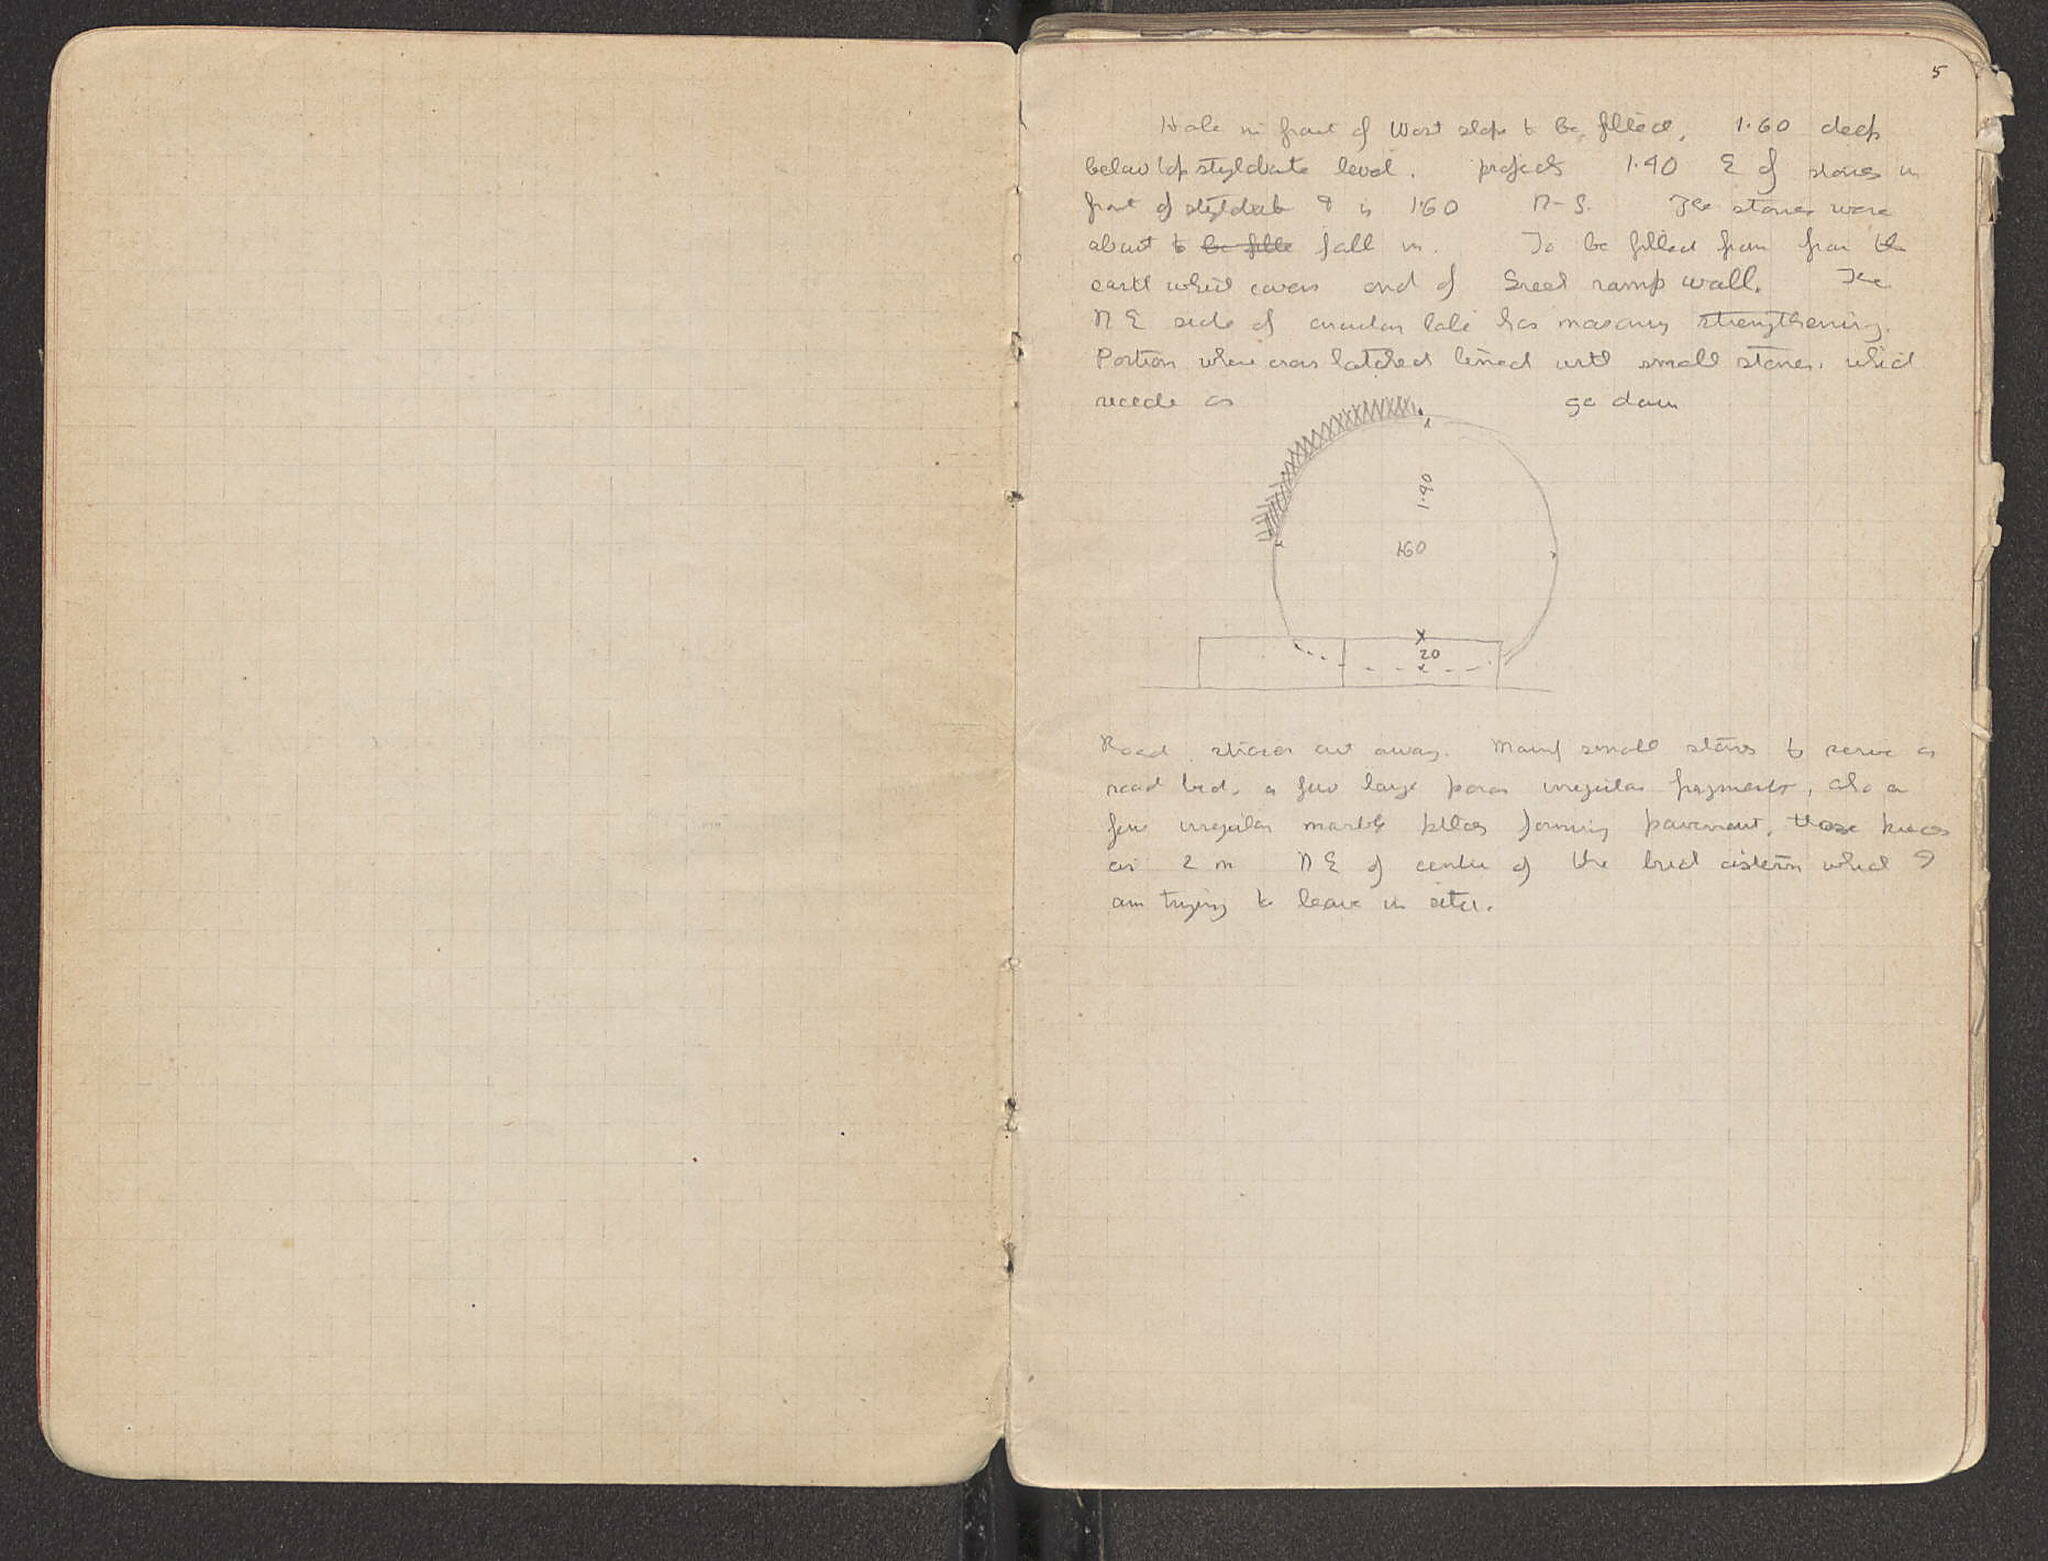 5
Hole in front of West slope to be filled, 1.60 deep
below top stylobate level. projects 1.40 E of stones in
front of stylobate & is 1.60 N-S. The stones were
about to be fille fall in. To be filled from from the
earth which covers end of Greek ramp wall. The
N E side of circular hole has masonry strengthening.
Portion where cross hatched lined with small stones, which
recede as go down
1.40
1.60
20
Road cut away. Many small stones to serve as
road bed, a few large poros irregular fragments, also a
few irregular marble forming pavement, these pieces
are 2 m N E of centre of the brick cistern which I
am trying to leave in situ.